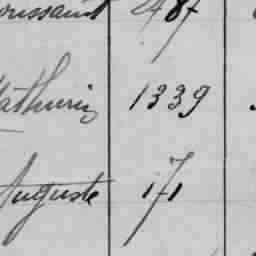 oussaint 487
athurin 1339
Auguste 171